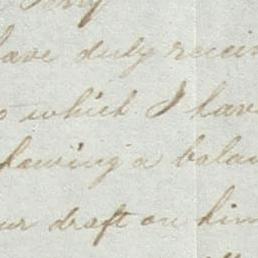 have duly receiv
o which I have
howing a balan
ur draft on him